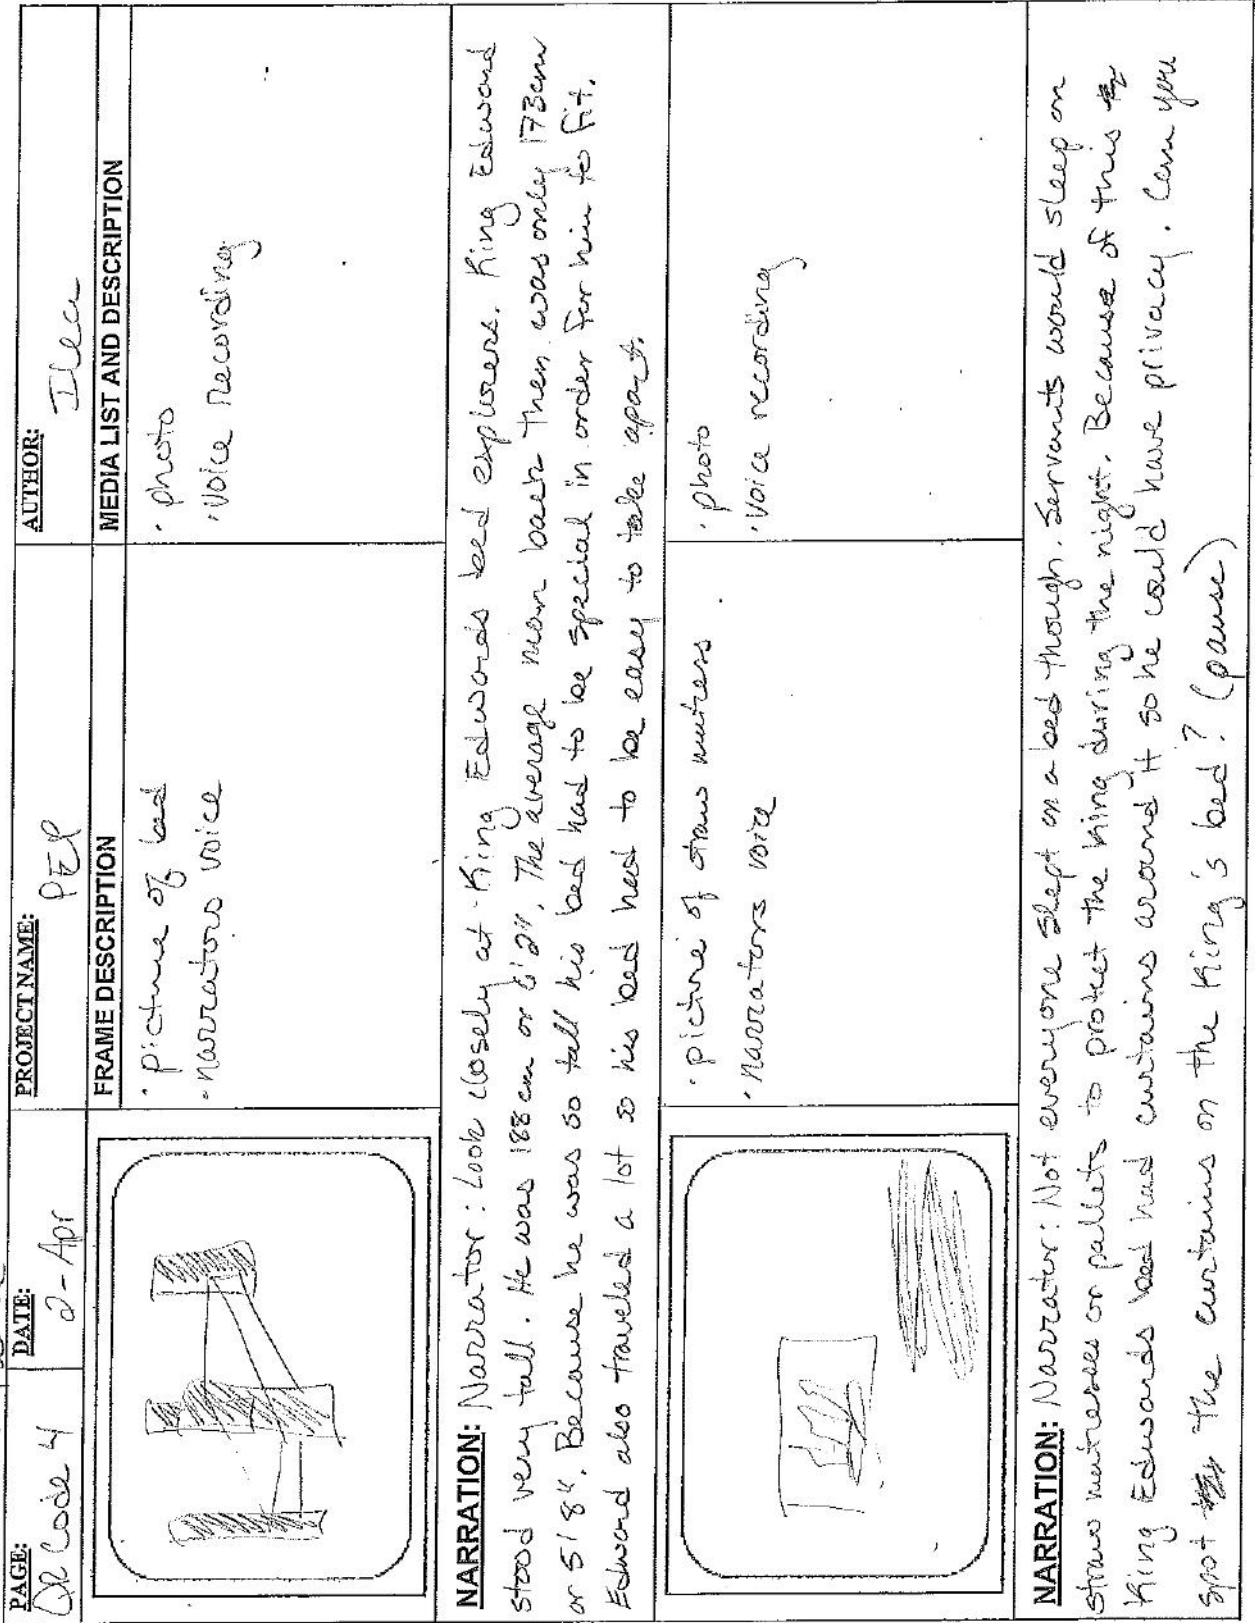 PAGE: QR Code 4
DATE: 2-Apr
PROJECT NAME: PEP
AUTHOR: Ilea
FRAME DESCRIPTION
MEDIA LIST AND DESCRIPTION
· picture of bed
· narrators voice
· photo
· voice recording
NARRATION: Narrator: Look closely at King Edwards bed explorers. King Edward
stood very tall. He was 188 cm or 6'2". The average man back then was only 173cm
or 5'8". Because he was so tall his bed had to be special in order for him to fit.
Edward also traveled a lot so his bed had to be easy to take apart.
· picture of straw mattress
· narrators voice
· photo
· voice recording
NARRATION: Narrator: Not everyone slept on a bed though. Servants would sleep on
straw mattresses or pallets to protect the king during the night. Because of this
King Edwards bed had curtains around it so he could have privacy. Can you
spot the curtains on the King's bed? (pause)